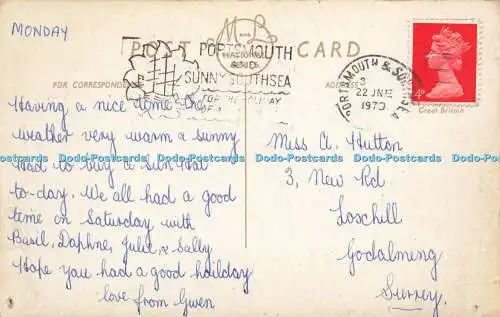 MONDAY
POST CARD
PORTSMOUTH
AND
SUNNY SOUTHSEA
FOR THE HOLIDAY
PORTSMOUTH & SOUTHSEA
22 JNE
1970
4ᴰ
Great Britain
FOR CORRESPONDENCE
Having a nice time the
weather very warm & sunny
Had to buy a sun Hat
to-day. We all had a good
time on Saturday with
Basil, Daphne, Julie & Sally
Hope you had a good hoilday
love from Gwen
Miss A. Hutton
3, New Rd
Loxhill
Godalming
Surrey.
Postcards-i Postcards-i Postcards-i Postcards-i Postcards-i Postcards-i